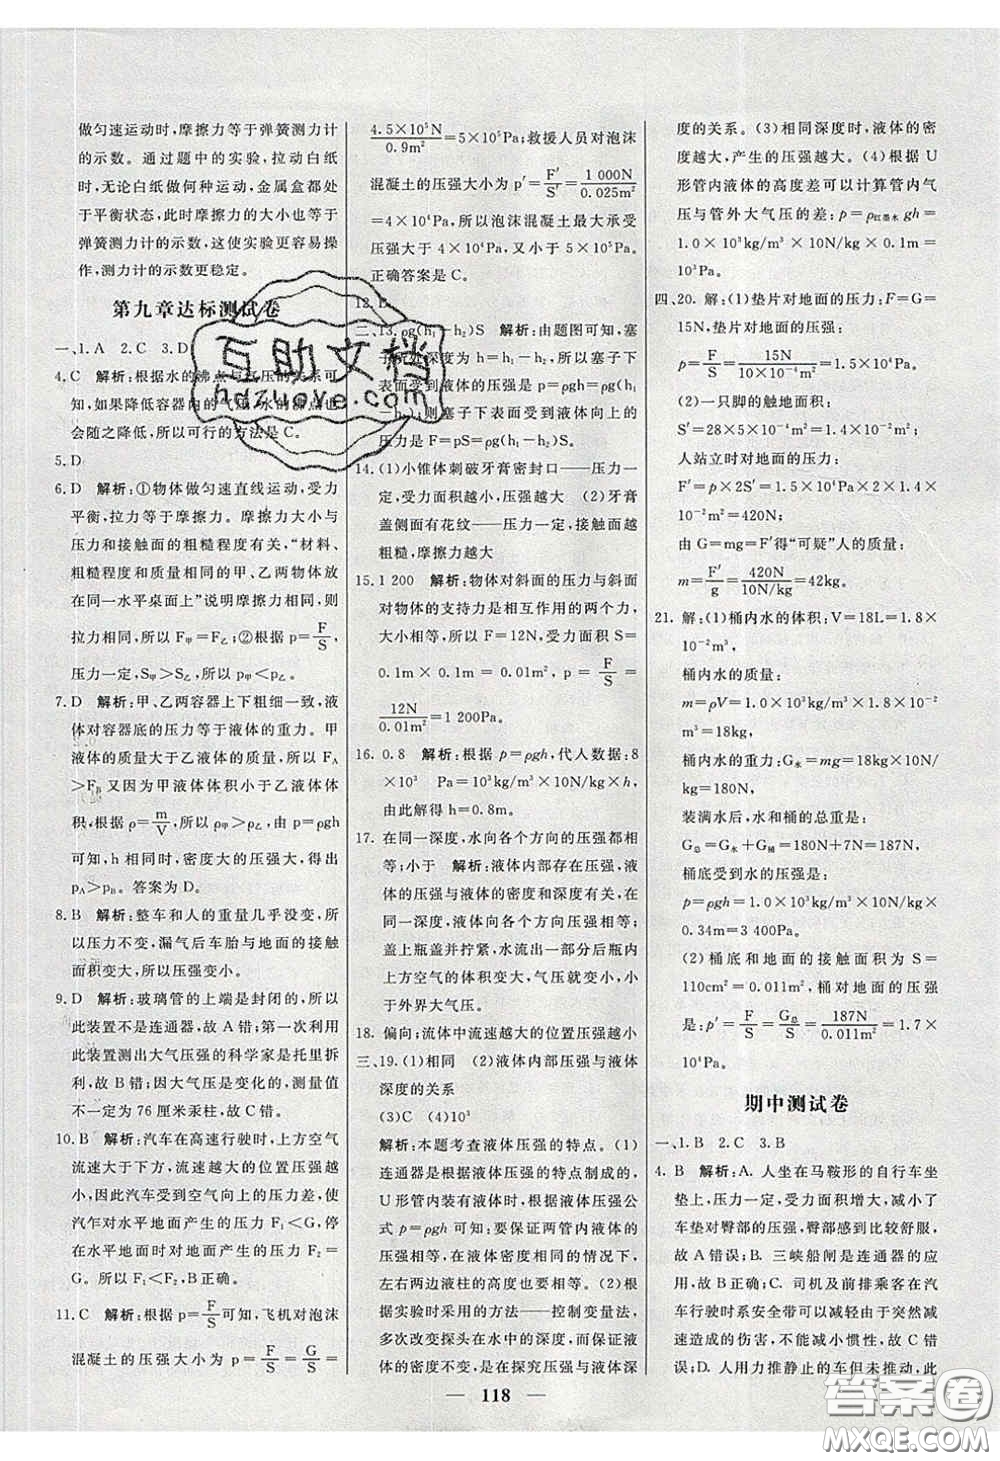 做匀速运动时,摩擦力等于弹簧测力计
的示数。通过题中的实验,拉动白纸
时,无论白纸做何种运动,金属盒都处
于平衡状态,此时摩擦力的大小也等于
弹簧测力计的示数,这使实验更容易操
作,测力计的示数更稳定。
第九章达标测试卷
一、1. A 2. C 3. D
4. C 解析:根据水的沸点与气压的关系可
知,如果降低容器内的气压,水的沸点也
会随之降低,所以可行的方法是C。
5. D
6. D 解析:①物体做匀速直线运动,受力
平衡,拉力等于摩擦力。摩擦力大小与
压力和接触面的粗糙程度有关,“材料、
粗糙程度和质量相同的甲、乙两物体放
在同一水平桌面上”说明摩擦力相同,则
拉力相同,所以F甲=F乙;②根据p=F/S,
压力一定,S甲>S乙,所以p甲<p乙。
7. D 解析:甲、乙两容器上下粗细一致,液
体对容器底的压力等于液体的重力。甲
液体的质量大于乙液体的质量,所以FA
>FB。甲液体体积小于乙液体体
积,根据ρ=m/V,所以ρ甲>ρ乙,由p=ρgh
可知,h相同时,密度大的压强大,得出
pA>pB。答案为D。
8. B 解析:整车和人的重量几乎没变,所
以压力不变,漏气后车胎与地面的接触
面积变大,所以压强变小。
9. D 解析:玻璃管的上端是封闭的,所
以此装置不是连通器,故A错;第一次利用
此装置测出大气压强的科学家是托里拆
利,故B错;因大气压是变化的,测量值
不一定为76厘米汞柱,故C错。
10. B 解析:汽车在高速行驶时,上方空气
流速大于下方,上方压强小于下方压强,
因此汽车受到空气向上的压力差,所以
汽车对水平地面产生的压力F1<G,停
在水平地面时对地面产生的压力F2=
G。所以F1<F2,故B正确。
11. C 解析:根据p=F/S可知,飞机对泡沫
混凝土的压强大小为p=F/S=G/S=
4.5×10⁵N/0.9m²=5×10⁵Pa;救援人员对泡沫
混凝土的压强大小为p′=F′/S′=1 000N/0.025m²
=4×10⁴Pa,所以泡沫混凝土最大承受
压强大于4×10⁴Pa,又小于5×10⁵Pa。
正确答案是C。
12.
二、13. ρg(h1-h2)S 解析:由题图可知,塞
子所处深度为h=h1-h2,所以塞子下
表面受到液体的压强是p=ρgh=ρg(h1
-h2),则塞子下表面受到液体向上的
压力是F=pS=ρg(h1-h2)S。
14. (1)小锥体刺破牙膏密封口——压力一
定,受力面积越小,压强越大 (2)牙膏
盖侧面有花纹——压力一定,接触面越
粗糙,摩擦力越大
15. 1 200 解析:物体对斜面的压力与斜面
对物体的支持力是相互作用的两个力,
大小相等,所以F=12N,受力面积S=
0.1m×0.1m=0.01m²,p=F/S=
12N/0.01m²=1 200Pa。
16. 0.8 解析:根据p=ρgh,代人数据:8
×10³ Pa=10³kg/m³×10N/kg×h,
由此解得h=0.8m。
17. 在同一深度,水向各个方向的压强都相
等;小于 解析:液体内部存在压强,液
体的压强与液体的密度和深度有关,在
同一深度,液体向各个方向压强相等;
盖上瓶盖并拧紧,水流出一部分后瓶内
上方空气的体积变大,气压就变小,小
于外界大气压。
18. 偏向;流体中流速越大的位置压强越小
三、19. (1)相同 (2)液体内部压强与液体
深度的关系
(3)C (4)10³
解析:本题考查液体压强的特点。(1)
连通器是根据液体压强的特点制成的,
U形管内装有液体时,根据液体压强公
式p=ρgh可知:要保证两管内液体的
压强相等,在液体密度相同的情况下,
左右两边液柱的高度也要相等。(2)
根据实验时采用的方法——控制变量法,
多次改变探头在水中的深度,而保证液
体的密度不变,是在探究压强与液体深
度的关系。(3)相同深度时,液体的密
度越大,产生的压强越大。(4)根据U
形管内液体的高度差可以计算管内气
压与管外大气压的差:p=ρ红墨水gh=
1.0×10³kg/m³×10N/kg×0.1m=
10³Pa。
四、20. 解:(1)垫片对地面的压力:F=G=
15N,垫片对地面的压强:
p=F/S=15N/10×10⁻⁴m²=1.5×10⁴Pa。
(2)一只脚的触地面积:
S′=28×5×10⁻⁴m²=1.4×10⁻²m²。
人站立时对地面的压力:
F′=p×2S′=1.5×10⁴Pa×2×1.4×
10⁻²m²=420N。
由G=mg=F′得“可疑”人的质量:
m=F′/g=420N/10N/kg=42kg。
21. 解:(1)桶内水的体积:V=18L=1.8×
10⁻²m³,
桶内水的质量:
m=ρV=1.0×10³kg/m³×1.8×10⁻²m³
=18kg,
桶内水的重力:G水=mg=18kg×10N/
kg=180N,
装满水后,水和桶的总重是:
G总=G水+G桶=180N+7N=187N。
桶底受到水的压强是:
p=ρgh=1.0×10³kg/m³×10N/kg×
0.34m=3 400Pa。
(2)桶底和地面的接触面积S=
110cm²=0.011m²,桶对地面的压强
是:p′=F/S=G总/S=187N/0.011m²=1.7×
10⁴Pa。
期中测试卷
一、1. B 2. C 3. B
4. B 解析:A. 人坐在马鞍形的自行车坐
垫上,压力一定,受力面积增大,减小了
车垫对臀部的压强,臀部感到比较舒服,
故A错误;B. 三峡船闸是连通器的应
用,故B正确;C. 司机及前排乘客在汽
车行驶时系安全带可以减轻由于突然减
速造成的伤害,不能减小惯性,故C错
误;D. 人用力推静止的车但未推动,此
118
互助文档
hdzuowe.com
答案圈
MXQE.COM